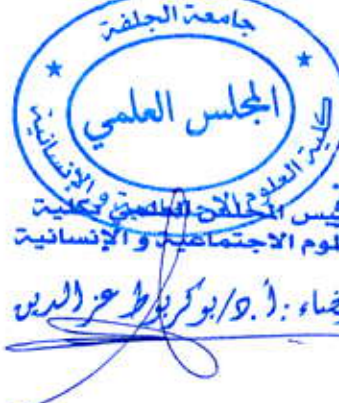 جامعة الجلفة
المجلس العلمي
كلية العلوم الإجتماعية و الإنسانية
رئيس المجلس العلمي لكلية
العلوم الاجتماعية و الإنسانية
إمضاء : أ.د/بوكربوط عز الدين